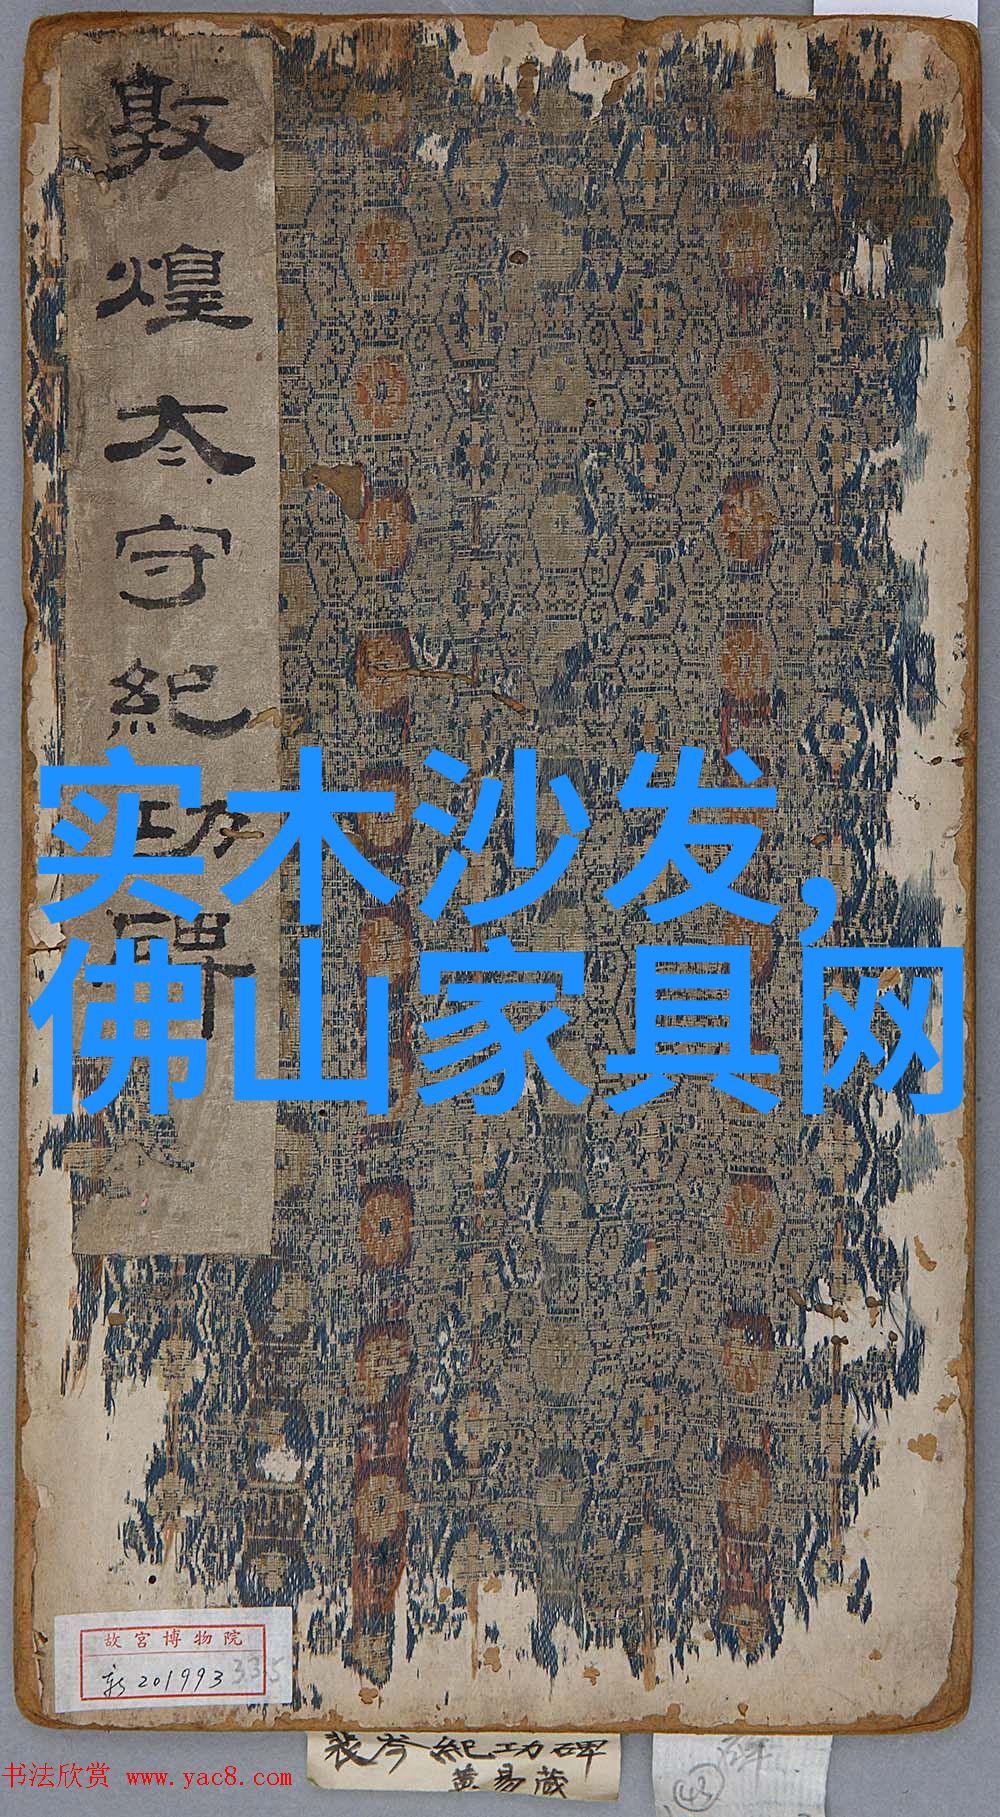 敦煌太守紀功碑
实木沙发,
佛山家具网
故宫博物院
新201993 335
裝岑紀功碑
黄易藏
43
书法欣赏 www.yac8.com